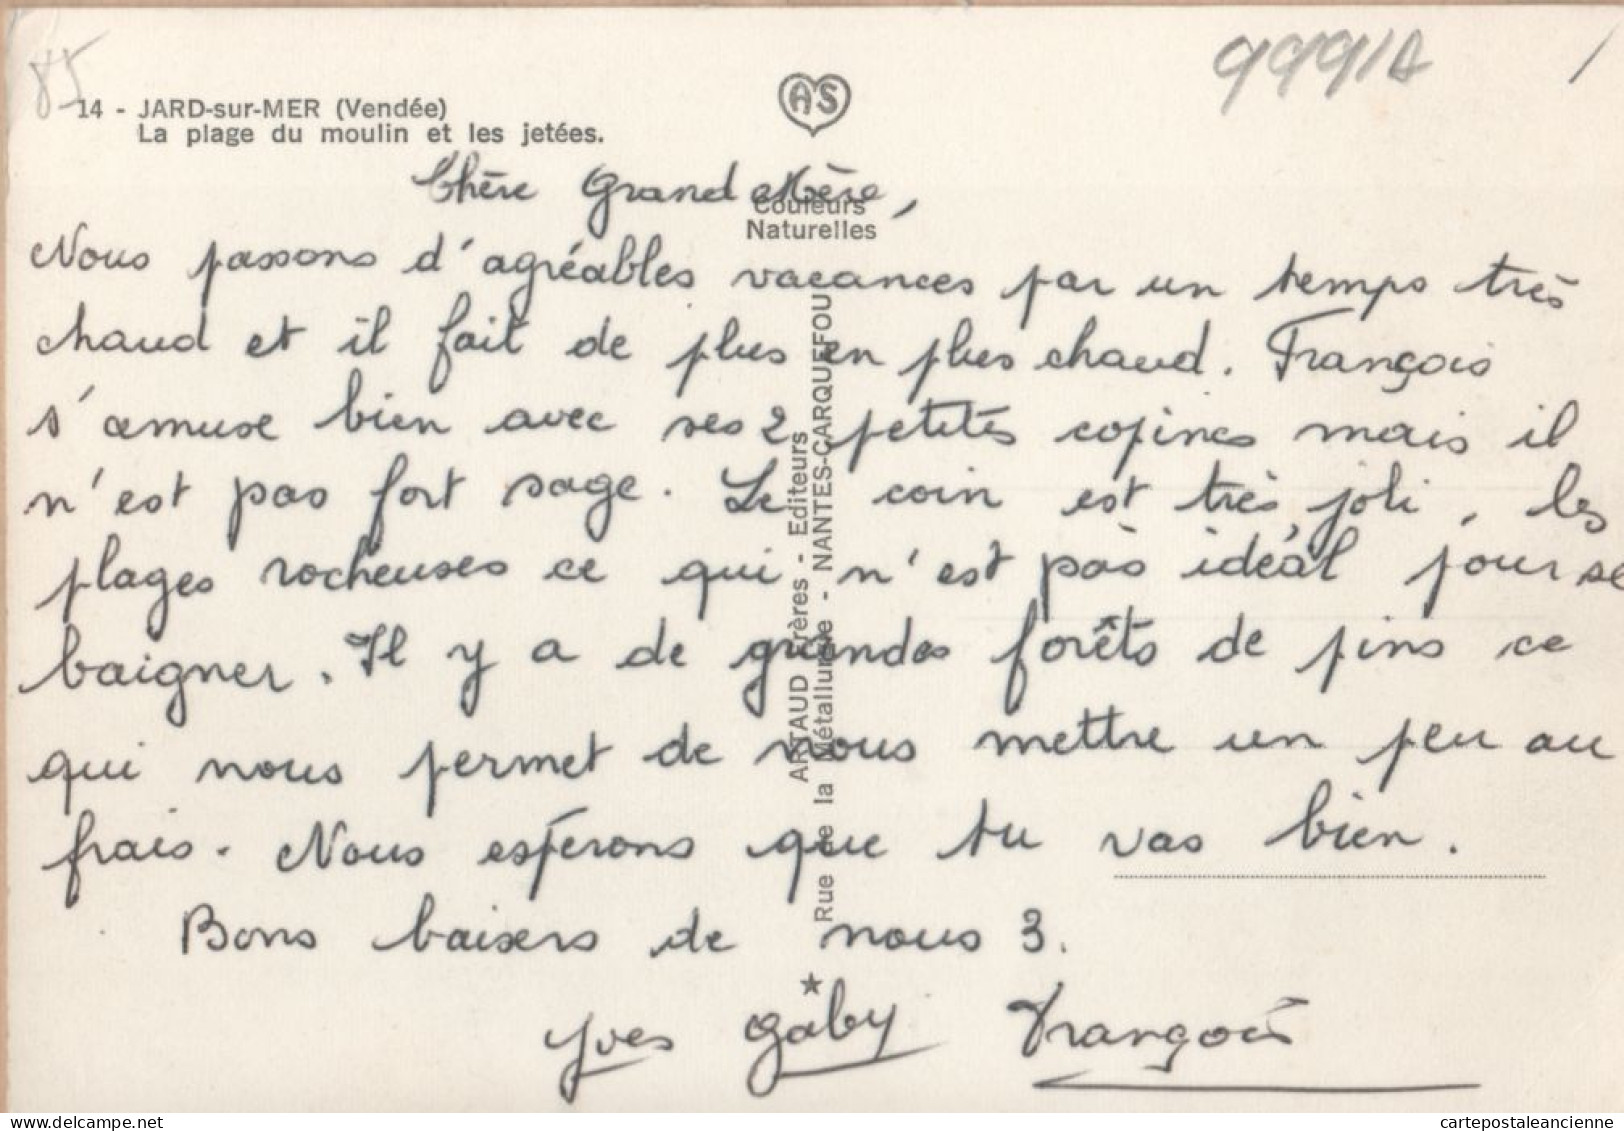 85
999/A
14 - JARD-sur-MER (Vendée)
La plage du moulin et les jetées.
AS
Couleurs
Naturelles
Chère Grand Mère,
Nous passons d'agréables vacances par un temps très
chaud et il fait de plus en plus chaud. François
s'amuse bien avec ses 2 petites copines mais il
n'est pas fort sage. Le coin est très joli, les
plages rocheuses ce qui n'est pas idéal pour se
baigner. Il y a de grandes forêts de pins ce
qui nous permet de nous mettre un peu au
frais. Nous espérons que tu vas bien.
Bons baisers de nous 3.
Yves Gaby François
ARTAUD Frères - Editeurs
Rue de la Métallurgie - NANTES-CARQUEFOU
cartepostaleancienne